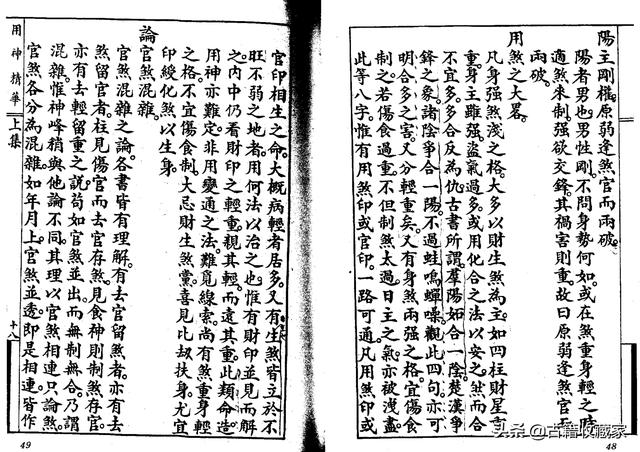 陽主剛權原弱逢煞官而兩破。
陽者男也男性剛。不問身勢何如。或在煞重身輕之時
適煞來制强欲交鋒。其禍害則重。故曰原弱逢煞官而
兩破。
用煞之大畧。
凡身强煞淺之格。大多以財生煞為主。如四柱財星
重身主雖强盜氣過多。或用化合之法以安之。然而合
不宜多多合反為仇。古書所謂羣陽妬合一陰。楚漢爭
鋒之象。諸陰爭合一陽。不過蛙鳴蟬噪。觀此四句。亦可
明合多之害。又分輕重矣。又有身煞兩强之格宜傷食
制之若傷食過重。不但制煞太過。日主之氣亦被洩盡
此等八字。惟有用煞印或官印。一路可通。凡用煞印或
48
官印相生之命。大概病輕者居多。又有生煞皆立於不
旺不弱之地者。用何法以治之也。惟有財印並見而解
之內中仍看財印之輕重。親其輕而遠其重。此類命造
用神亦難定。非用變通之法。難覓線索。尚有煞重身輕
之格。不宜傷食制。大忌財生煞黨。喜見比劫扶身。尤宜
印綬化煞以生身。
論官煞混雜
官煞混雜之論。各書皆有理解。有去官留煞者。亦有去
煞留官者。柱見傷官而去官存煞。見食神則制煞存官。
亦有去輕留重之説。苟如官煞並出而無制無合。乃謂
混雜。惟神峰稍與他論不同。其理以官煞相連只論煞。
官煞各分為混雜。如年月上官煞並透。即是相連。皆作
用神精華 上集
十八
49
头条@古籍收藏家